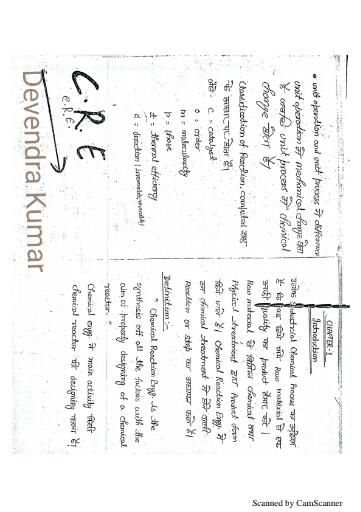 CHAPTER-1
Introduction
प्रत्येक Industrial Chemical Process का उद्देश्य
है कि दिए गये Raw material से एक
अच्छी quality का product तैयार करें।
Raw material को विभिन्न chemical तथा
Physical treatment द्वारा Product form
किये जाते हैं। Chemical Reaction Engg. में
हम chemical treatment में होने वाली
Reaction or step का अध्ययन करते हैं।
Definition:-
" Chemical Reaction Engg. is the
synthesis of all the factors with the
aim of properly designing of a chemical
reactor."
Chemical engg में main activity किसी
chemical reactor की designing करना है।
• unit operation and unit process में difference
unit operation में mechanical change होता
है जबकि unit process में chemical
change होता है।
Classification of Reaction,
के आधार पर होता है।
जैसे C = catalyst
o = order
m = molecularity
p = phase
t = thermal efficiency
d = direction (irreversible, reversible)
C.R.E
C.R.E
Devendra Kumar
Scanned by CamScanner